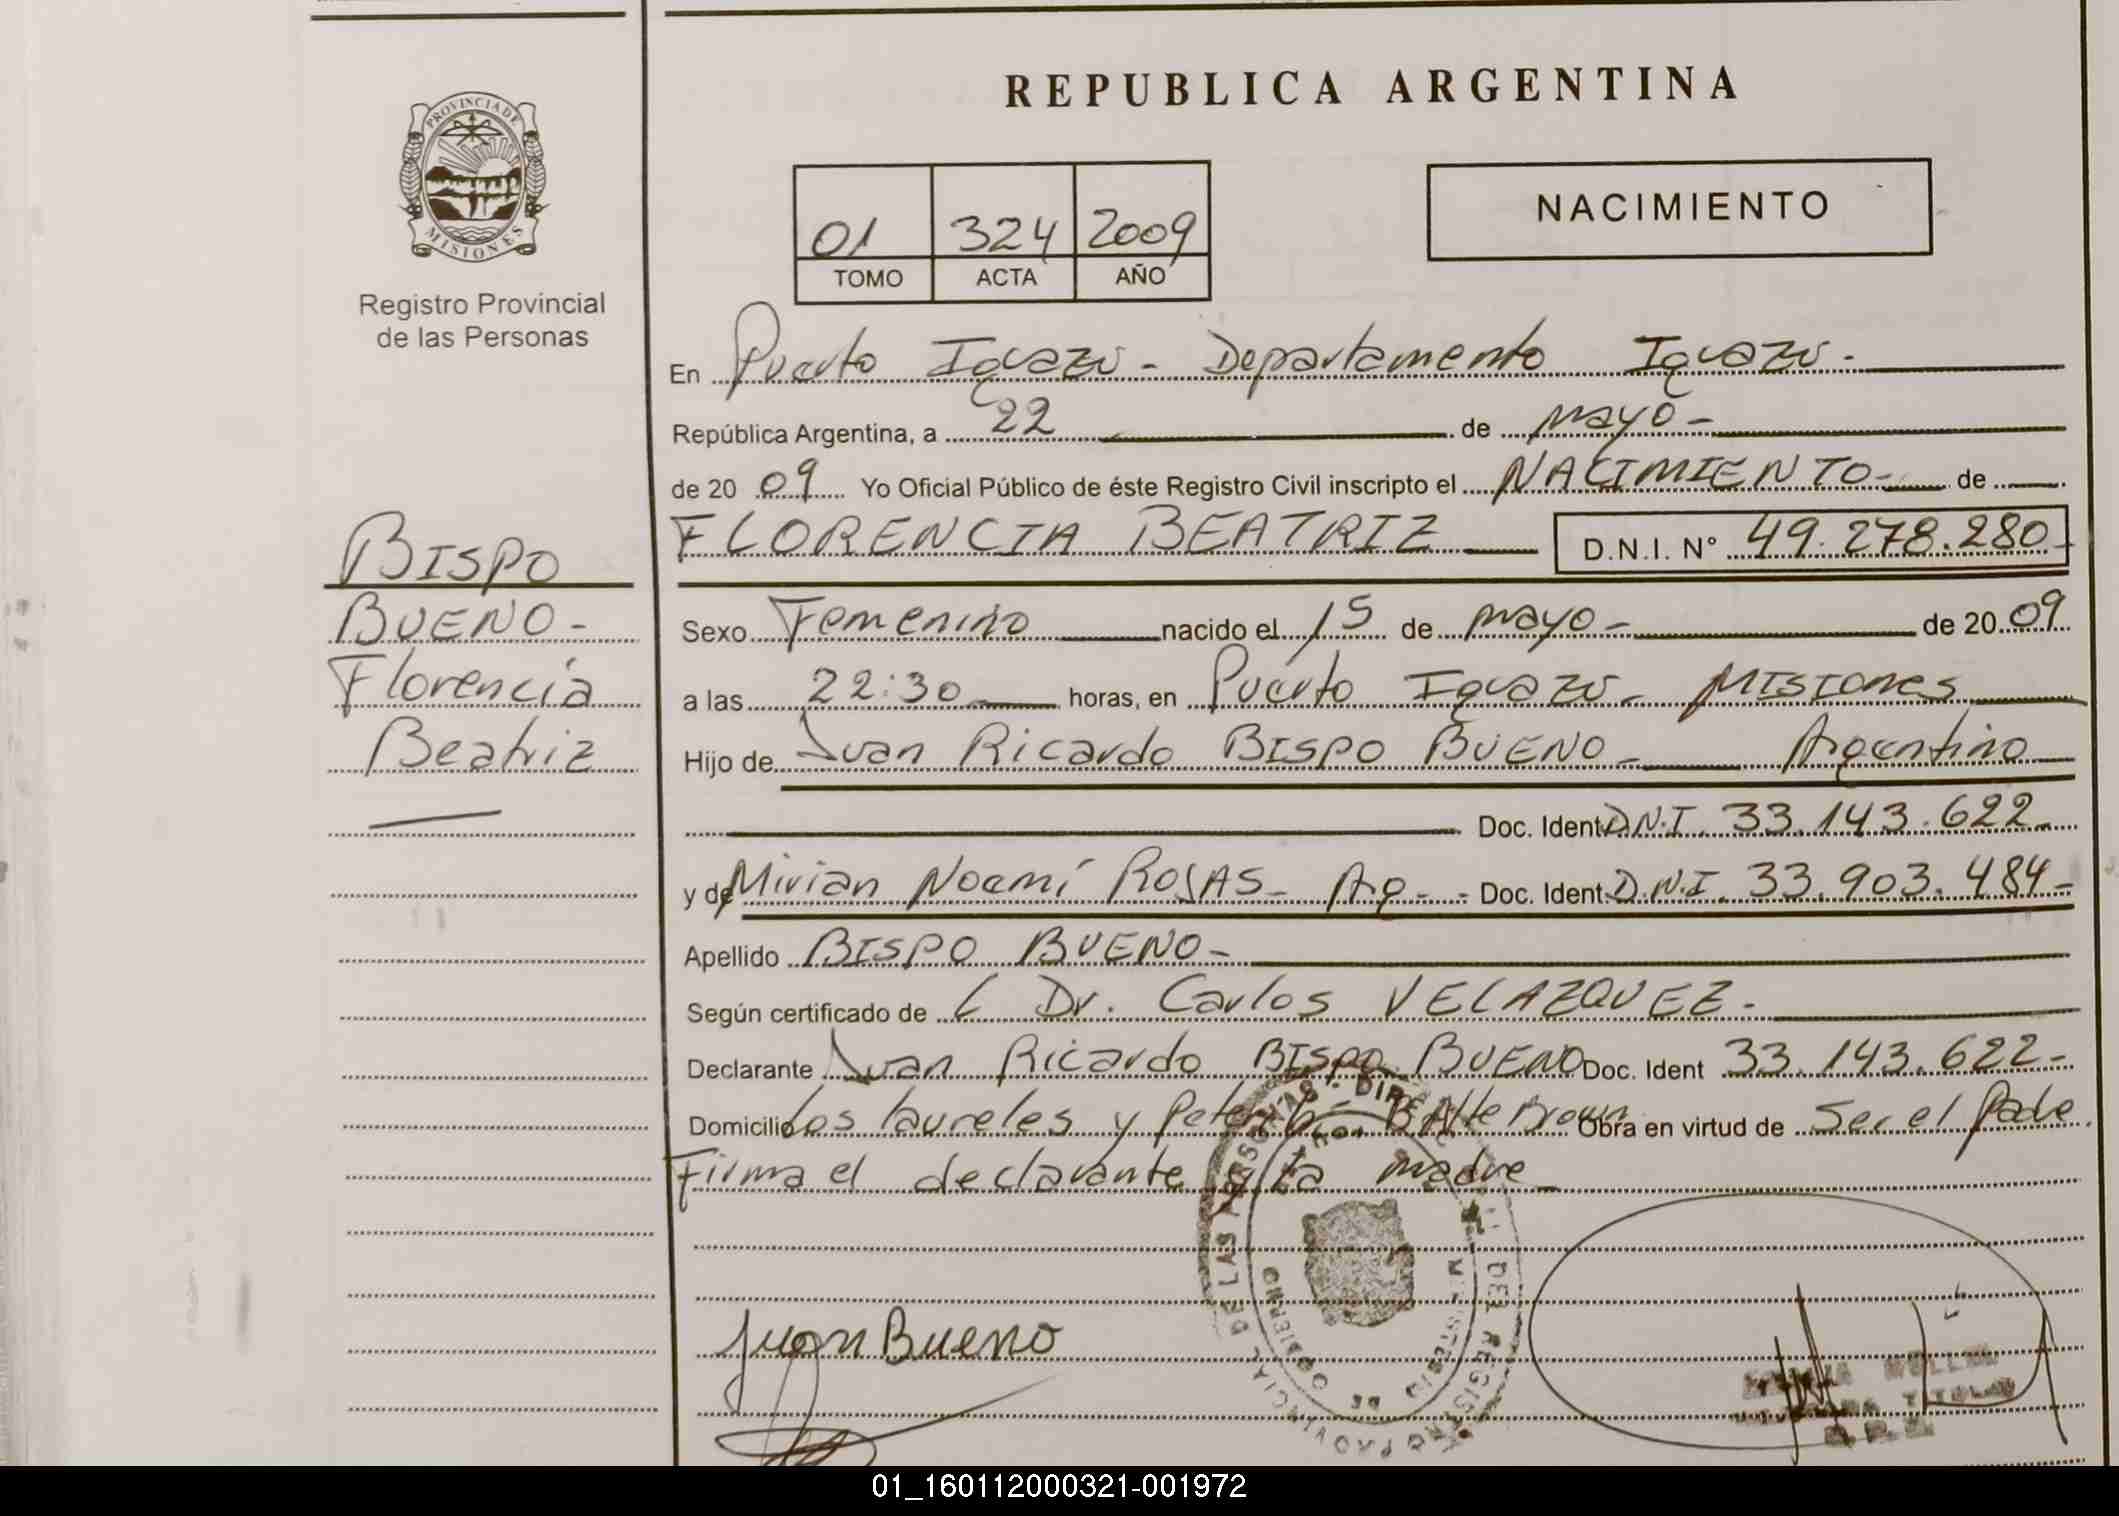 REPUBLICA ARGENTINA
PROVINCIA DE
MISIONES
Registro Provincial
de las Personas
01 324 2009
TOMO ACTA AÑO
NACIMIENTO
En Puerto Iguazú - Departamento Iguazú -
República Argentina, a 22 de mayo -
de 20 09 Yo Oficial Público de éste Registro Civil inscripto el NACIMIENTO - de
FLORENCIA BEATRIZ D.N.I. N° 49.278.280
BISPO
BUENO -
Florencia
Beatriz
Sexo Femenino nacido el 15 de mayo - de 20 09
a las 22:30 horas, en Puerto Iguazú - Misiones
Hijo de Juan Ricardo BISPO BUENO - Argentino
Doc. Ident D.N.I. 33.143.622 -
y de Mirian Noemí ROJAS - Arg - Doc. Ident. D.N.I. 33.903.484 -
Apellido BISPO BUENO -
Según certificado de L Dr. Carlos VELAZQUEZ -
Declarante Juan Ricardo BISPO BUENO Doc. Ident 33.143.622 -
Domicilio Los laureles y B Alte Brown Obra en virtud de Ser el Padre
Firma el declarante y la madre -
DIREC DEL REGISTRO PROVINCIAL DE LAS PERSONAS
MINISTERIO DE GOBIERNO
Juan Bueno
01_160112000321-001972